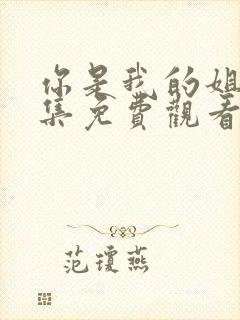 你是我的姐
集免費觀看
范瓊燕